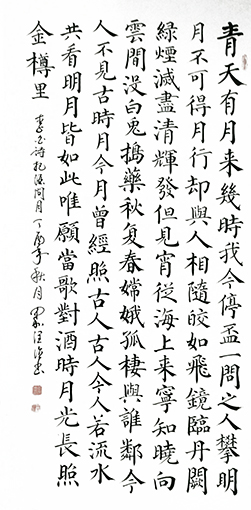 青天有月來幾時我今停盃一問之人攀明
月不可得月行却與人相隨皎如飛鏡臨丹闕
綠煙滅盡清輝發但見宵從海上來寧知曉向
雲間没白兔搗藥秋复春嫦娥孤棲與誰鄰今
人不見古時月今月曾經照古人古人今人若流水
共看明月皆如此唯願當歌對酒時月光長照
金樽里 李白詩把酒問月 秋月